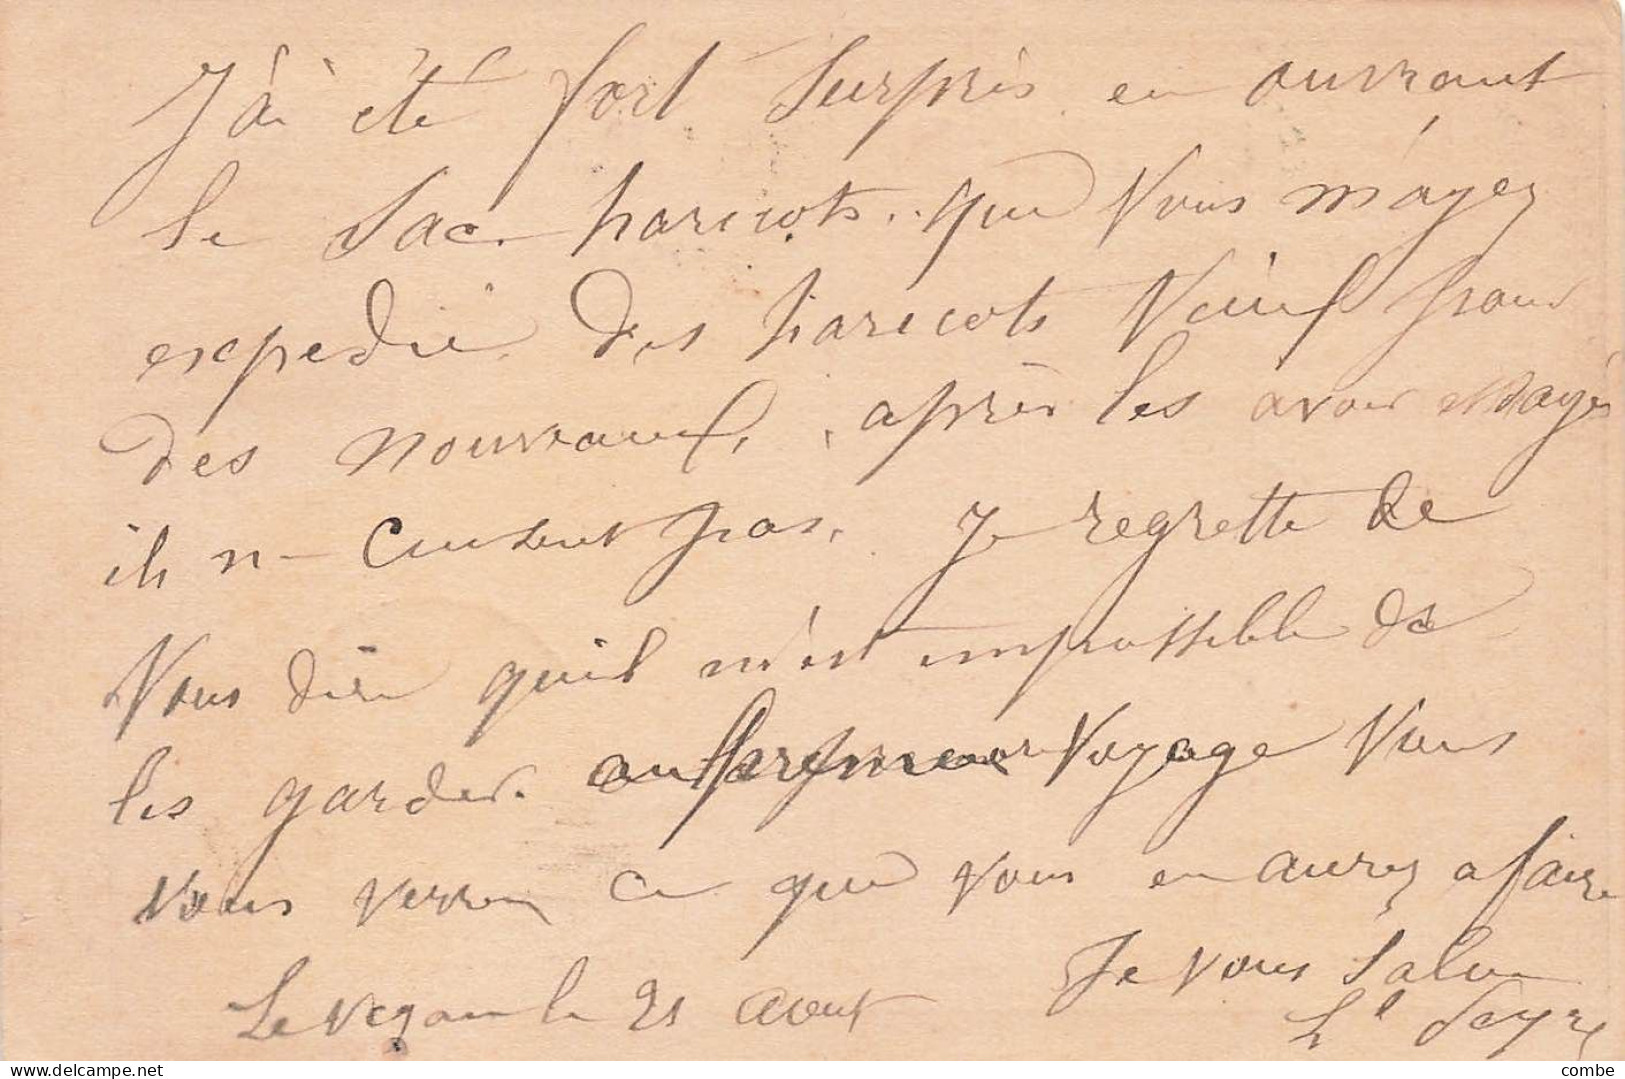 J'ai été fort surpris en ouvrant
le sac haricots. que vous m'ayez
expedié. des haricots vieux pour
des nouveaux, après les avoir essayés
ils n- cuisent pas. je regrette de
vous dire quil m'est impossible de
les garder. au premier voyage vous
vous verrez ce que vous en aurez a faire
Je vous salue
Le Vegan le 21 aout
delcampe.net
combe